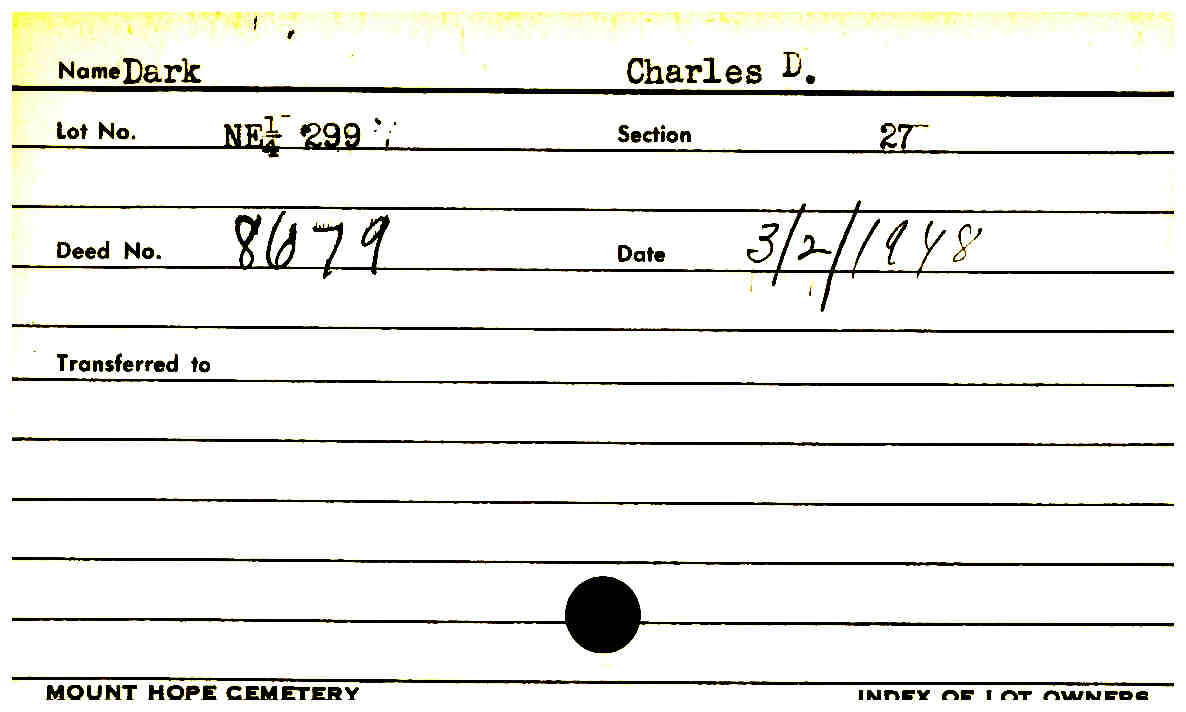 Name Dark Charles D.
Lot No. NE¼ 299 Section 27
Deed No. 8679 Date 3/2/1948
Transferred to
MOUNT HOPE CEMETERY INDEX OF LOT OWNERS